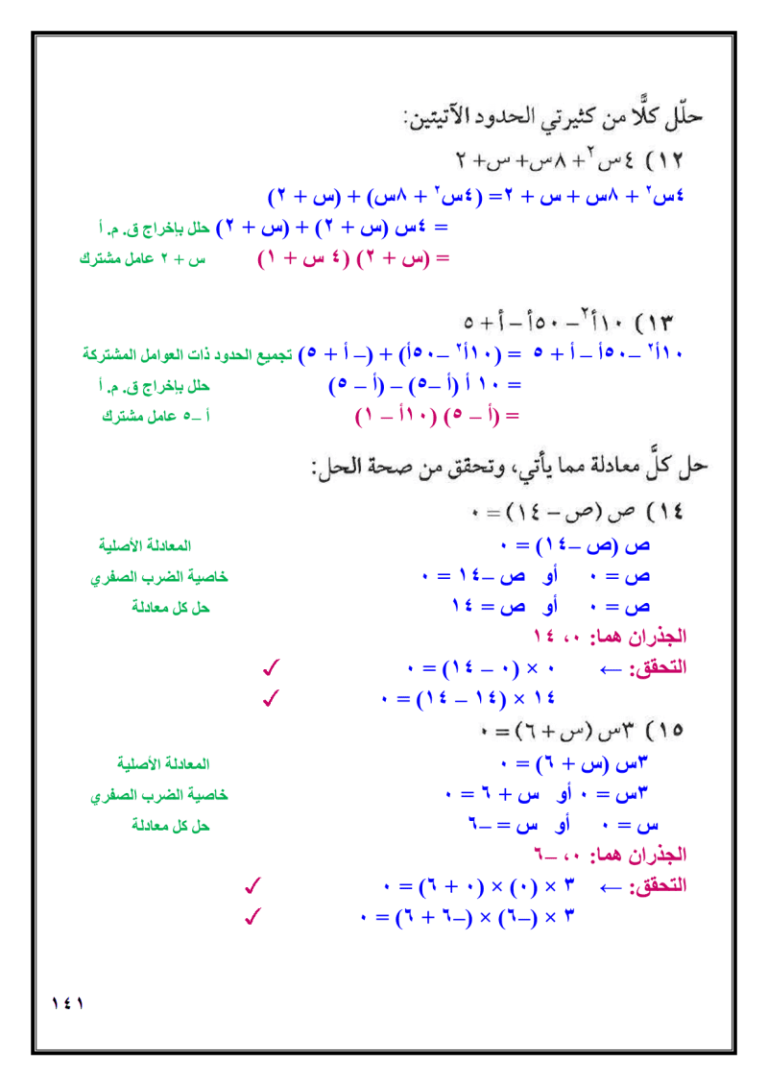 حلّل كلًّا من كثيرتي الحدود الآتيتين:
١٢) ٤س٢ + ٨س + س + ٢
٤س٢ + ٨س + س + ٢ = (٤س٢ + ٨س) + (س + ٢)
= ٤س (س + ٢) + (س + ٢) حلل بإخراج ق. م. أ
= (س + ٢) (٤ س + ١) س + ٢ عامل مشترك
١٣) ١٠أ٢ – ٥٠أ – أ + ٥
١٠أ٢ –٥٠أ – أ + ٥ = (١٠أ٢ –٥٠أ) + (– أ + ٥) تجميع الحدود ذات العوامل المشتركة
= ١٠ أ (أ –٥) – (أ – ٥) حلل بإخراج ق. م. أ
= (أ – ٥) (١٠أ – ١) أ –٥ عامل مشترك
حل كلَّ معادلة مما يأتي، وتحقق من صحة الحل:
١٤) ص (ص – ١٤) = ٠
ص (ص –١٤) = ٠ المعادلة الأصلية
ص = ٠ أو ص –١٤ = ٠ خاصية الضرب الصفري
ص = ٠ أو ص = ١٤ حل كل معادلة
الجذران هما: ٠، ١٤
التحقق: ← ٠ × (٠ – ١٤) = ٠ ✓
١٤ × (١٤ – ١٤) = ٠ ✓
١٥) ٣س (س + ٦) = ٠
٣س (س + ٦) = ٠ المعادلة الأصلية
٣س = ٠ أو س + ٦ = ٠ خاصية الضرب الصفري
س = ٠ أو س = –٦ حل كل معادلة
الجذران هما: ٠، –٦
التحقق: ← ٣ × (٠) × (٠ + ٦) = ٠ ✓
٣ × (–٦) × (–٦ + ٦) = ٠ ✓
١٤١